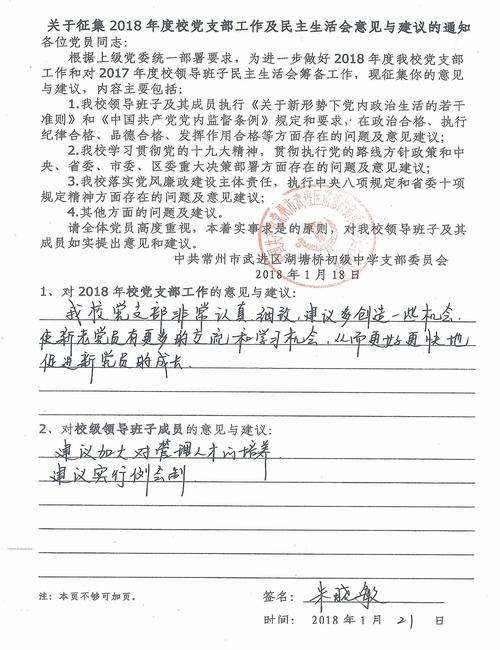 关于征集 2018 年度校党支部工作及民主生活会意见与建议的通知
各位党员同志：
根据上级党委统一部署要求，为进一步做好 2018 年度我校党支部
工作和对 2017 年度校领导班子民主生活会筹备工作，现征集你的意见
与建议，内容主要包括：
1.我校领导班子及其成员执行《关于新形势下党内政治生活的若干
准则》和《中国共产党党内监督条例》规定和要求，在政治合格、执行
纪律合格、品德合格、发挥作用合格等方面存在的问题及意见建议；
2.我校学习贯彻党的十九大精神，贯彻执行党的路线方针政策和中
央、省委、市委、区委重大决策部署方面存在的问题及意见建议；
3.我校落实党风廉政建设主体责任，执行中央八项规定和省委十项
规定精神方面存在的问题及意见建议；
4.其他方面的问题及建议。
请全体党员高度重视，本着实事求是的原则，对我校领导班子及其
成员如实提出意见和建议。
中共常州市武进区湖塘桥初级中学支部委员会
2018 年 1 月 18 日
1、对 2018 年校党支部工作的意见与建议：
我校党支部非常认真细致，建议多创造一些机会，
使新老党员有更多的方向和学习机会，从而更好更快地
促进新党员的成长。
2、对校级领导班子成员的意见与建议：
建议加大对管理人才的培养
建议实行例会制
注：本页不够可加页。
签名：朱晓敏
时间： 2018 年 1 月 21 日